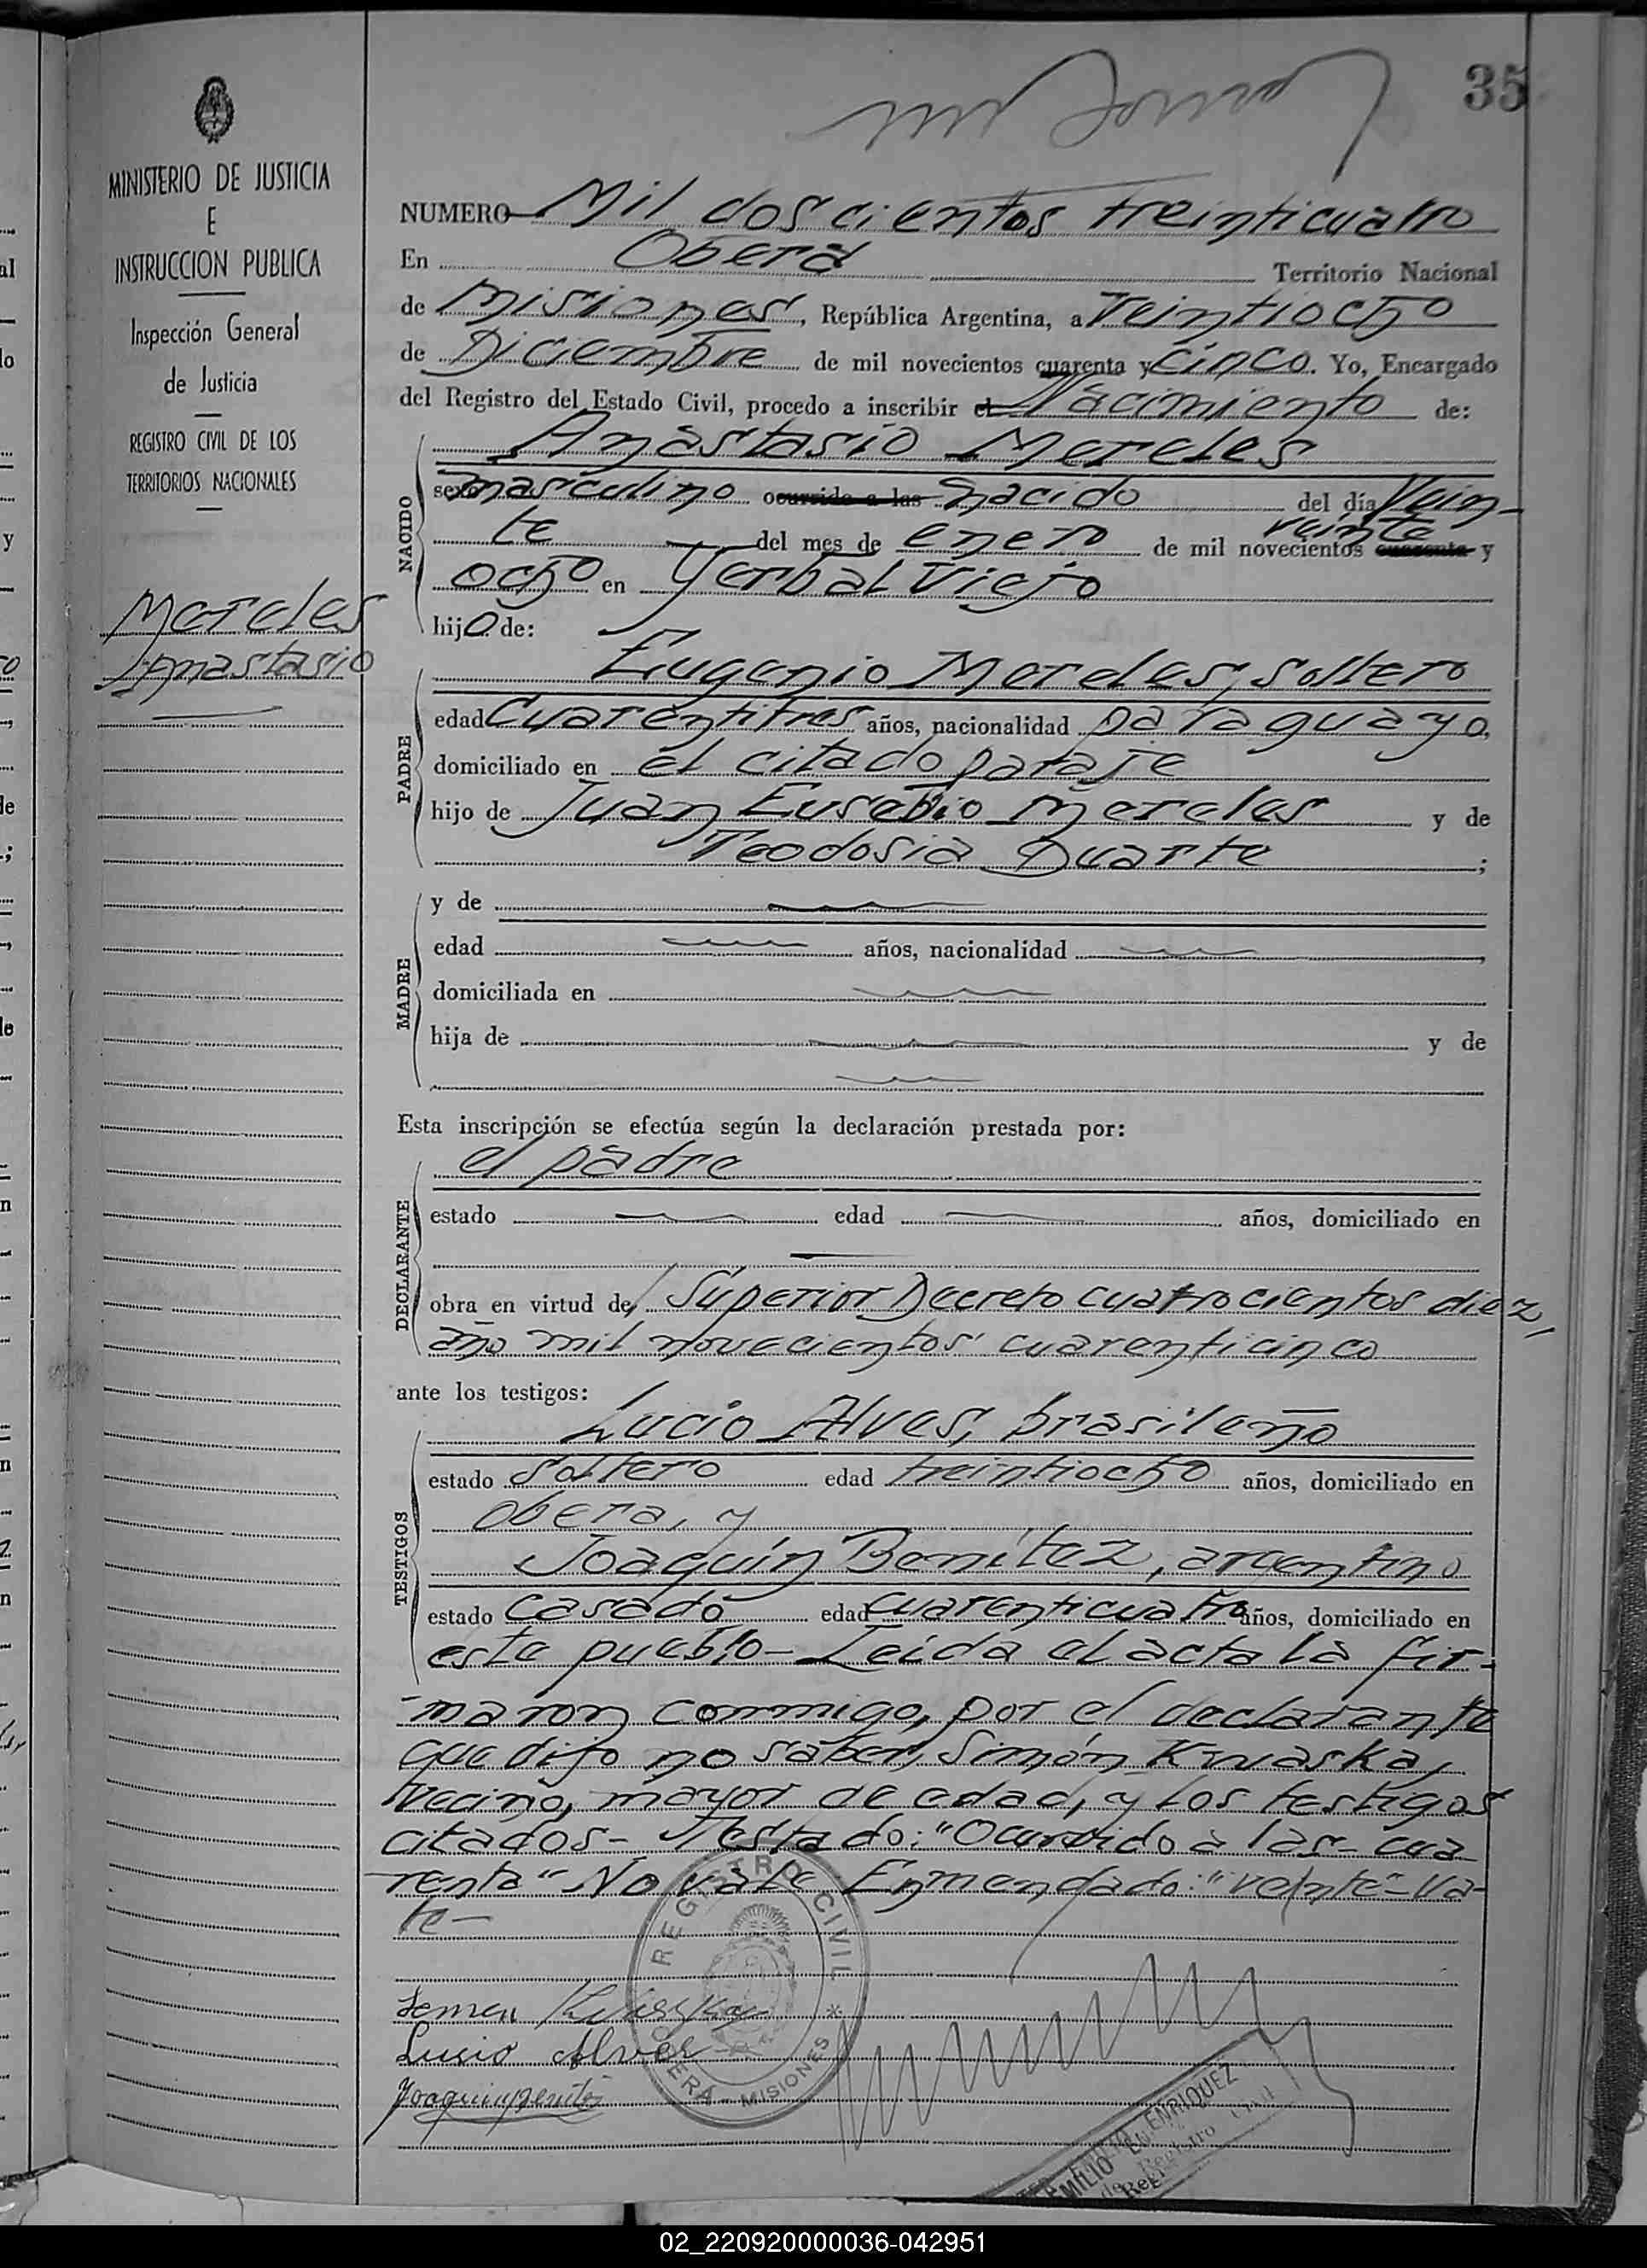 35
MINISTERIO DE JUSTICIA
E
INSTRUCCION PUBLICA
Inspección General
de Justicia
REGISTRO CIVIL DE LOS
TERRITORIOS NACIONALES
Mereles
Anastasio
NUMERO Mil doscientos treinticuatro
En Oberá Territorio Nacional
de Misiones, República Argentina, a Veintiocho
de Diciembre de mil novecientos cuarenta y Cinco. Yo, Encargado
del Registro del Estado Civil, procedo a inscribir el Nacimiento de:
NACIDO
Anastasio Mereles
sexo masculino ocurrido a las nacido del día Vein-
te del mes de enero de mil novecientos cuarenta veinte y
ocho en Yerbal Viejo
hijo de:
PADRE
Eugenio Mereles, soltero
edad Cuarentitres años, nacionalidad paraguayo,
domiciliado en el citado paraje
hijo de Juan Eusebio Mereles y de
Teodosia Duarte ;
MADRE
y de
edad años, nacionalidad
domiciliada en
hija de y de
Esta inscripción se efectúa según la declaración prestada por:
DECLARANTE
el padre
estado edad años, domiciliado en
obra en virtud de Superior Decreto cuatrocientos diez,
año mil novecientos cuarenticinco
ante los testigos:
TESTIGOS
Lucio Alves, brasileño
estado Soltero edad treintiocho años, domiciliado en
Obera, y
Joaquín Benítez, argentino
estado Casado edad cuarenticuatro años, domiciliado en
este pueblo- Leída el acta la fir-
maron conmigo, por el declarante
que dijo no saber, Simón Kwaska,
vecino, mayor de edad, y los testigos
citados- Testado: "Ocurrido a las- cua
renta" No vale Enmendado: "veinte"- Va-
le-
REGISTRO CIVIL
OBERA - MISIONES
Lucio Alves
EMILIO E. ENRIQUEZ
02_220920000036-042951